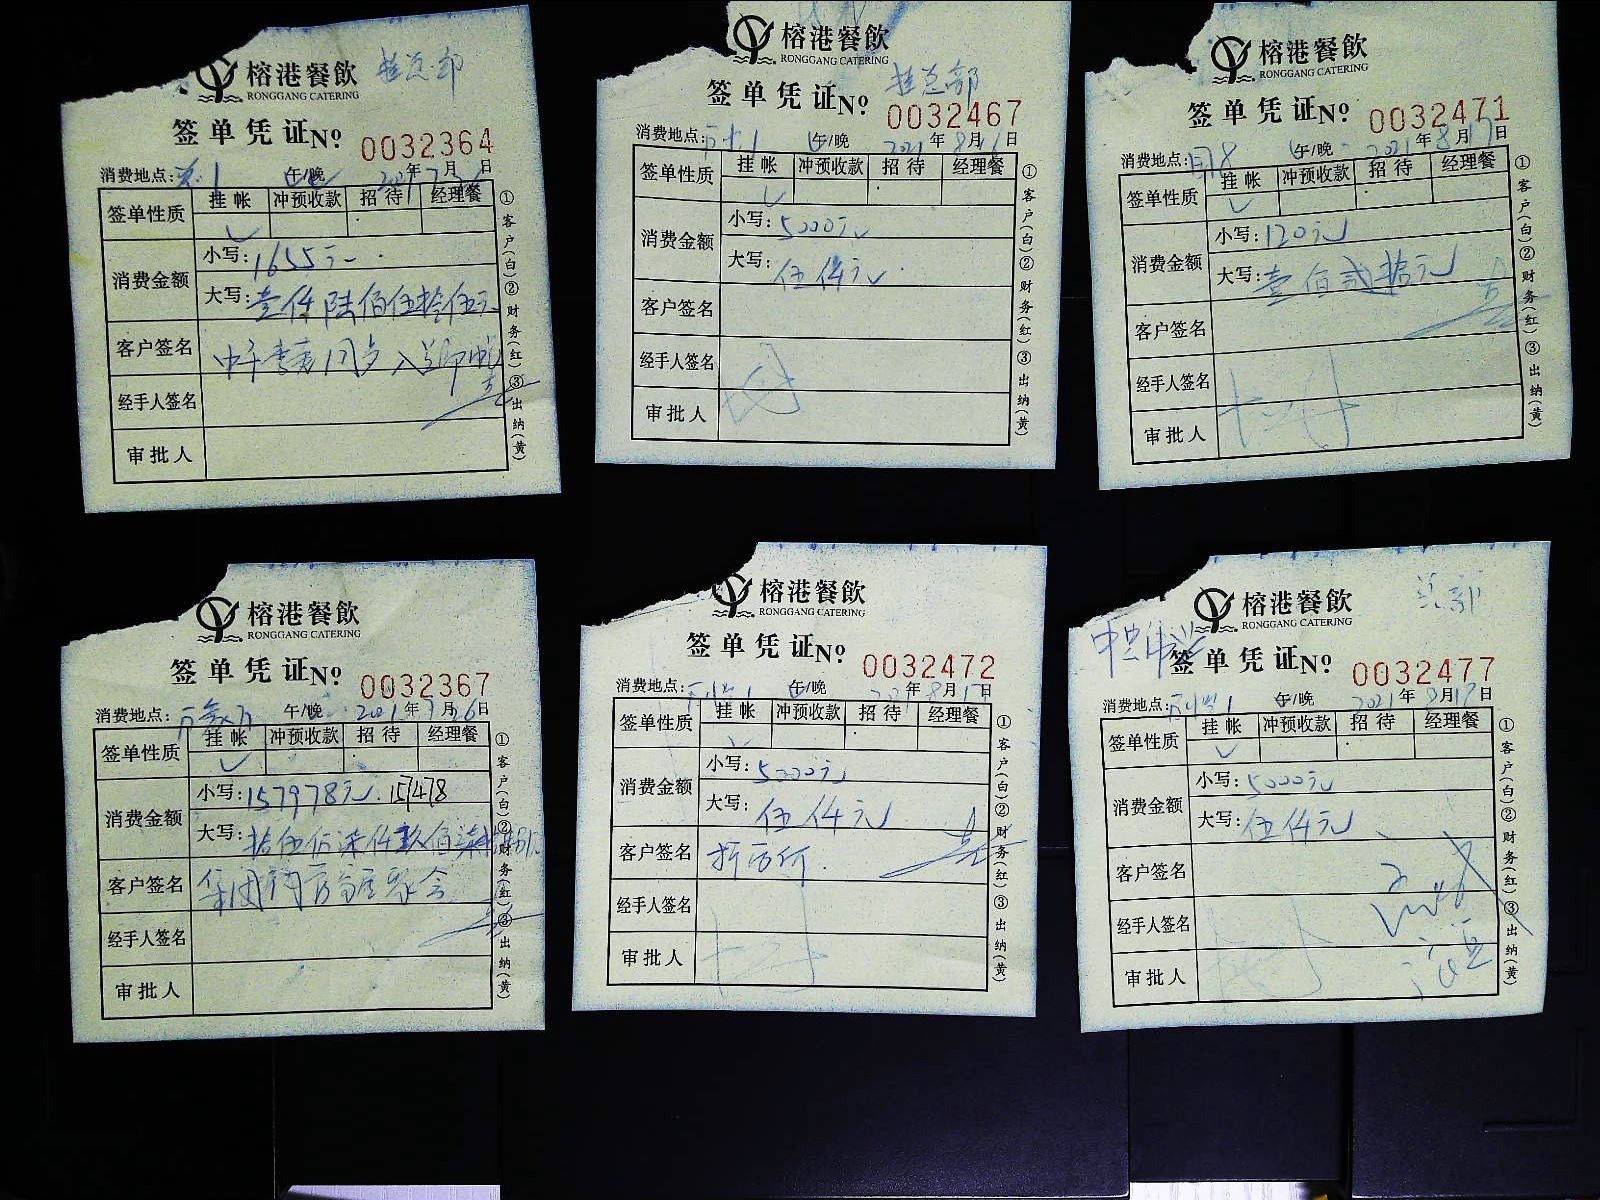 榕港餐飲 挂总部
RONGGANG CATERING
签单凭证 No 0032364
消费地点: 午/晚 年 月 日
签单性质 挂帐 冲预收款 招待 经理餐
消费金额 小写: 1655元
大写: 壹仟陆佰伍拾伍元
客户签名
经手人签名
审批人
①客户(白)②财务(红)③出纳(黄)
榕港餐飲
RONGGANG CATERING 挂总部
签单凭证 No 0032467
消费地点: 午/晚 2021年8月 日
签单性质 挂帐 冲预收款 招待 经理餐
消费金额 小写: 5000元
大写: 伍仟元
客户签名
经手人签名
审批人
①客户(白)②财务(红)③出纳(黄)
榕港餐飲
RONGGANG CATERING
签单凭证 No 0032471
消费地点: 午/晚 2021年8月17日
签单性质 挂帐 冲预收款 招待 经理餐
消费金额 小写: 120元
大写: 壹佰贰拾元
客户签名
经手人签名
审批人
①客户(白)②财务(红)③出纳(黄)
榕港餐飲
RONGGANG CATERING
签单凭证 No 0032367
消费地点: 午/晚 2021年7月26日
签单性质 挂帐 冲预收款 招待 经理餐
消费金额 小写: 157978元. 15/4/8
大写: 拾伍万柒仟玖佰柒拾捌元
客户签名
经手人签名
审批人
①客户(白)②财务(红)③出纳(黄)
榕港餐飲
RONGGANG CATERING
签单凭证 No 0032472
消费地点: 午/晚 年8月17日
签单性质 挂帐 冲预收款 招待 经理餐
消费金额 小写: 5000元
大写: 伍仟元
客户签名
经手人签名
审批人
①客户(白)②财务(红)③出纳(黄)
榕港餐飲 总部
RONGGANG CATERING
签单凭证 No 0032477
消费地点: 午/晚 2021年8月17日
签单性质 挂帐 冲预收款 招待 经理餐
消费金额 小写: 5000元
大写: 伍仟元
客户签名
经手人签名
审批人
①客户(白)②财务(红)③出纳(黄)